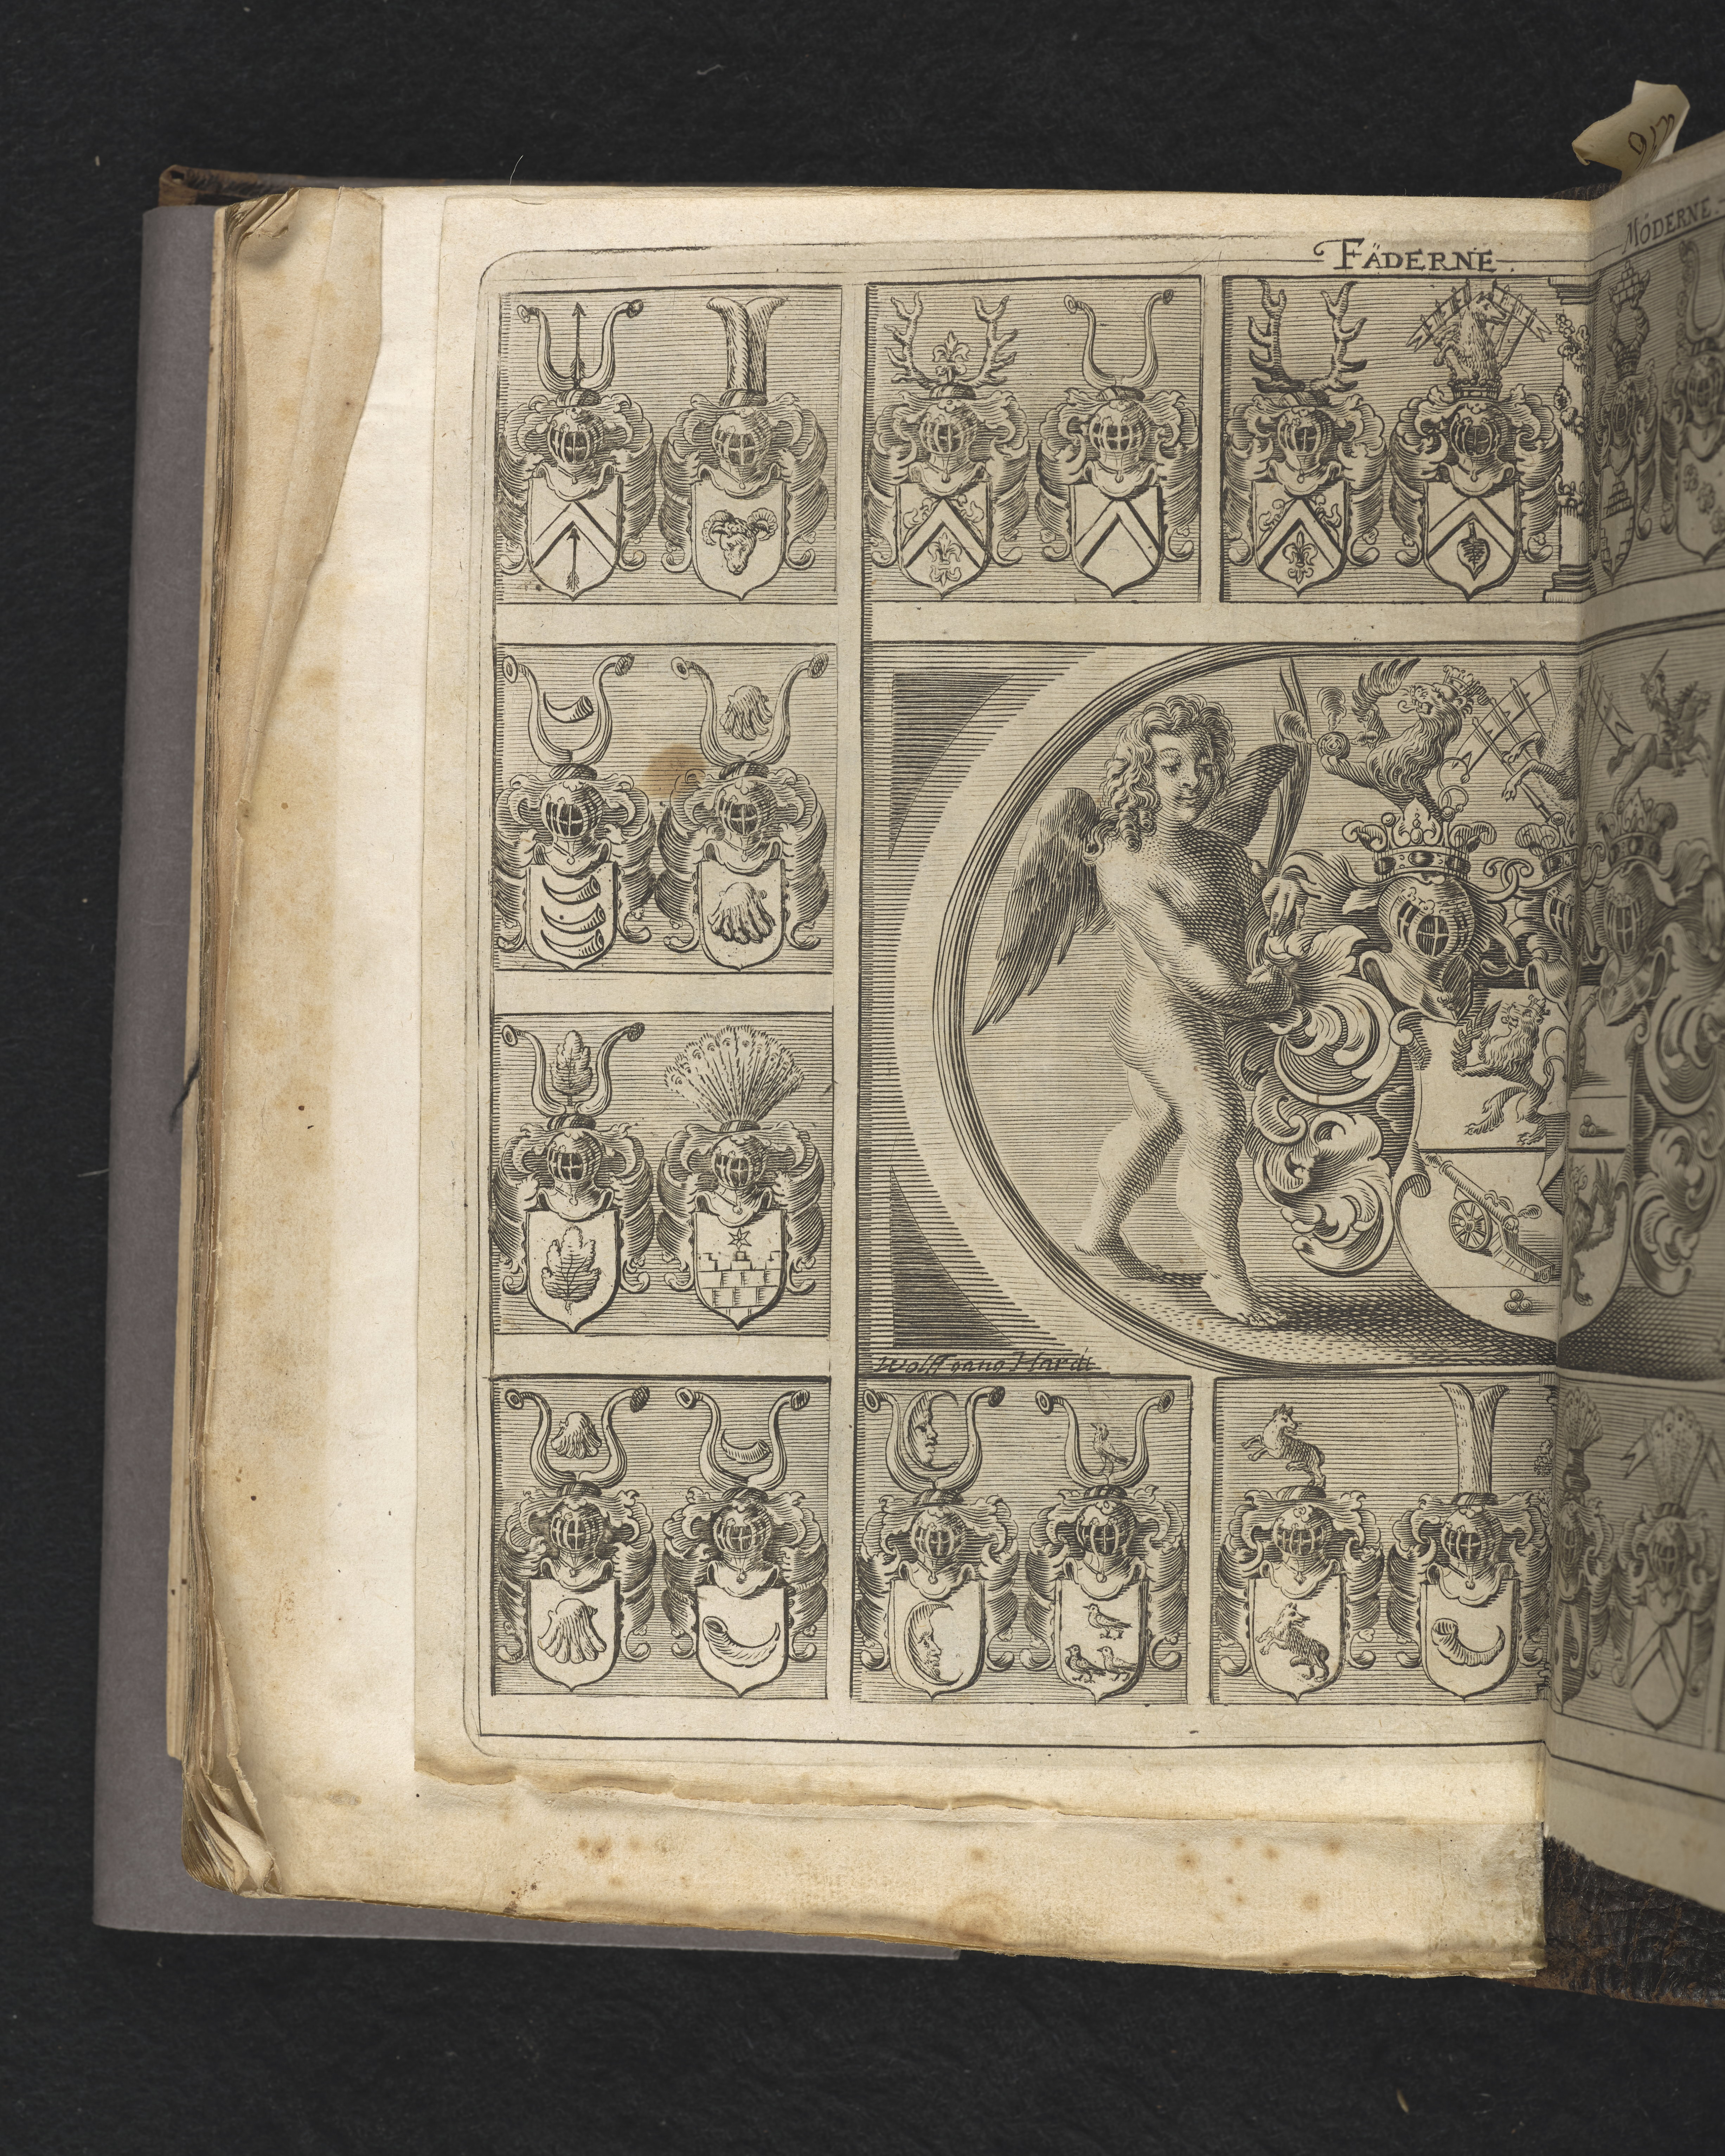 FÄDERNE.
MÖDERNE.
Wolffgang Hardi